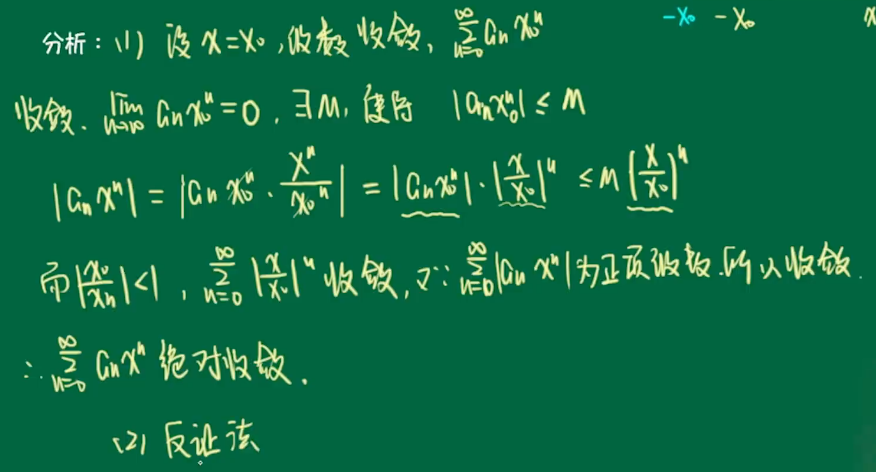 -x₀ -x₀ x
分析：(1) 设 x=x₀，级数收敛，∑_{n=0}^{∞} aₙx₀ⁿ
收敛、lim_{n→∞} aₙx₀ⁿ=0，∃M，使得 |aₙx₀ⁿ| ≤ M
|aₙxⁿ| = |aₙx₀ⁿ · xⁿ/x₀ⁿ| = |aₙx₀ⁿ| · |x/x₀|ⁿ ≤ M|x/x₀|ⁿ
而|x₀/xₙ|<1，∑_{n=0}^{∞} |x/x₀|ⁿ 收敛，又∵∑_{n=0}^{∞}|aₙxⁿ|为正项级数.所以收敛.
∴ ∑_{n=0}^{∞} aₙxⁿ 绝对收敛.
(2) 反证法